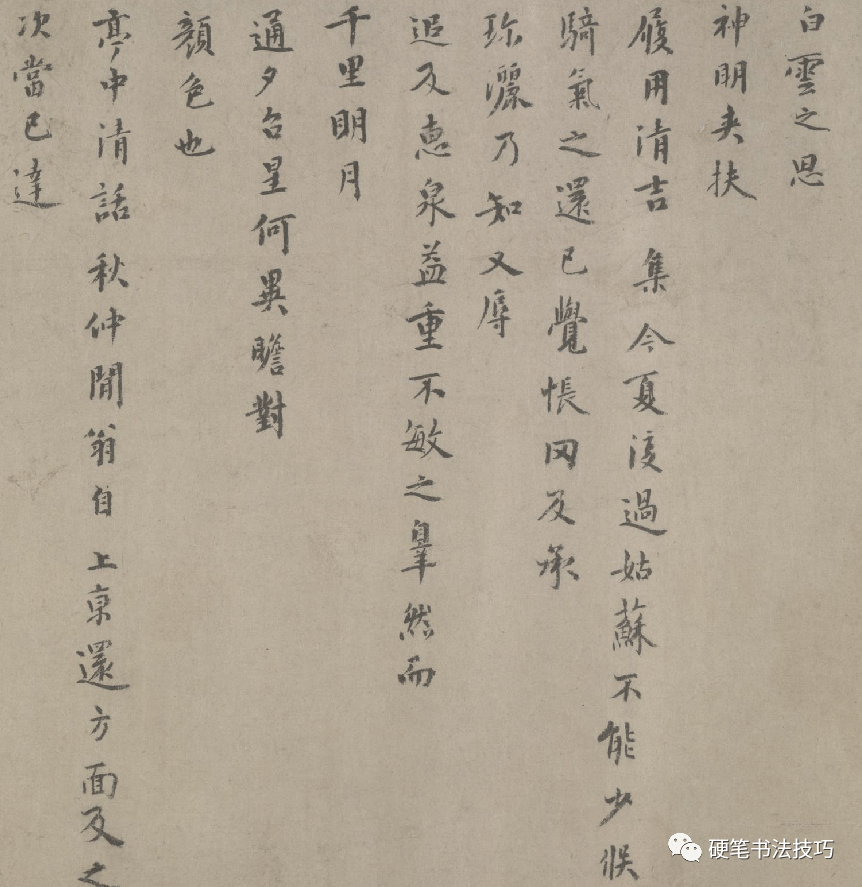 白雲之思
神明夾扶
履用清吉集今夏浸過姑蘇不能少候
騎氣之還已覺悵罔及承
珍灑乃知又辱
追及惠泉益重不敏之辠然而
千里明月
通夕台星何異瞻對
顏色也
亭中清話秋仲閒翁自上京還方面及之
次當已達
硬笔书法技巧